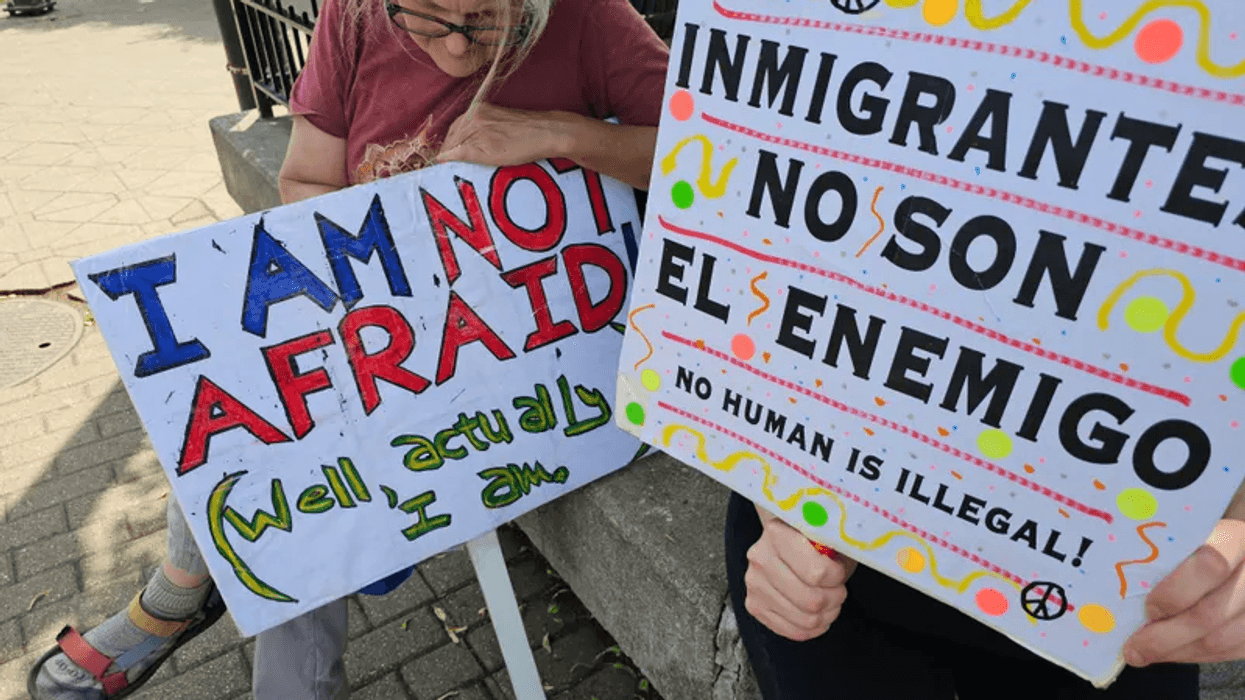 I AM NOT
AFRAID
(Well, actually
I am.
INMIGRANTE
NO SON
EL ENEMIGO
NO HUMAN IS ILLEGAL!